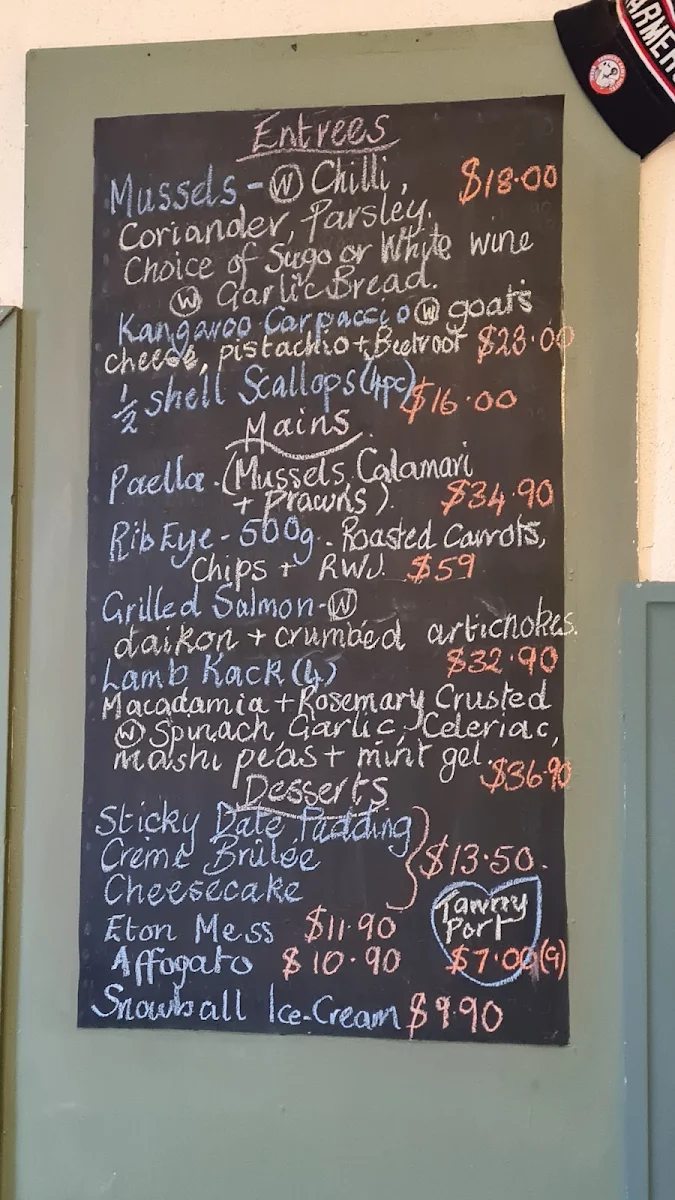 ARMER
Entrees
Mussels - W Chilli, $18.00
Coriander, Parsley.
Choice of Sugo or White wine
W Garlic Bread.
Kangaroo Carpaccio W goats
cheese, pistachio + Beetroot $23.00
1/2 shell Scallops (4pc) $16.00
Mains
Paella - (Mussels, Calamari
+ Prawns). $34.90
Rib Eye - 500g - Roasted Carrots,
Chips + RWJ $59
Grilled Salmon - W
daikon + crumbed artichokes.
$32.90
Lamb Rack (4)
Macadamia + Rosemary Crusted
W Spinach, Garlic, Celeriac,
mashi peas + mint gel. $36.90
Desserts
Sticky Date Pudding
Creme Brûlée $13.50.
Cheesecake
Eton Mess $11.90
Tawny
Port
Affogato $10.90 $7.00 (G)
Snowball Ice-Cream $9.90